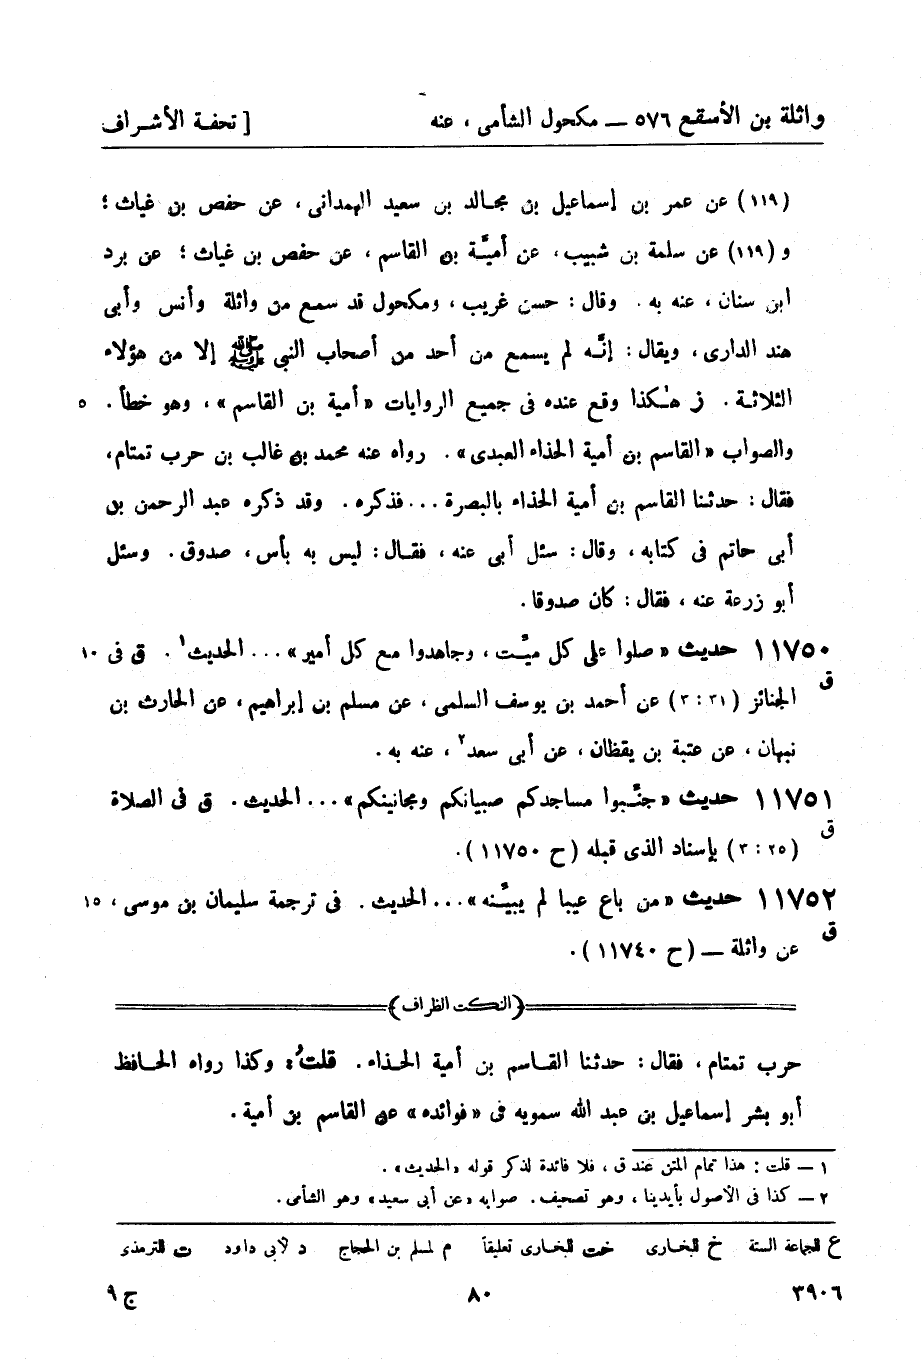 واثلة بن الأسقع ٥٧٦ — مكحول الشأمى ، عنه [ تحفة الأشراف
(١١٩) عن عمر بن إسماعيل بن مجالد بن سعيد الهمدانى ، عن حفص بن غياث ؛
و (١١٩) عن سلمة بن شبيب ، عن أميَّة بن القاسم ، عن حفص بن غياث ؛ عن برد
ابن سنان ، عنه به . وقال : حسن غريب ، ومكحول قد سمع من واثلة وأنس وأبى
هند الدارى ، ويقال : إنَّه لم يسمع من أحد من أصحاب النبى ﷺ إلا من هؤلاء
الثلاثة . ز هٰكذا وقع عنده فى جميع الروايات «أمية بن القاسم» ، وهو خطأ . ٥
والصواب «القاسم بن أمية الحذاء العبدى» . رواه عنه محمد بن غالب بن حرب تمتام ،
فقال : حدثنا القاسم بن أمية الحذاء بالبصرة ... فذكره . وقد ذكره عبد الرحمن بن
أبى حاتم فى كتابه ، وقال : سئل أبى عنه ، فقال : ليس به بأس ، صدوق . وسئل
أبو زرعة عنه ، فقال : كان صدوقا .
١١٧٥٠ حديث «صلوا على كل ميَّت ، وجاهدوا مع كل أمير» ... الحديث١ . ق فى ١٠
ق الجنائز (٣١ : ٣) عن أحمد بن يوسف السلمى ، عن مسلم بن إبراهيم ، عن الحارث بن
نبهان ، عن عتبة بن يقظان ، عن أبى سعد٢ ، عنه به .
١١٧٥١ حديث «جنَّبوا مساجدكم صبيانكم ومجانينكم» ... الحديث . ق فى الصلاة
ق (٢٥ : ٣) بإسناد الذى قبله (ح ١١٧٥٠) .
١١٧٥٢ حديث «من باع عيبا لم يبيَّنه» ... الحديث . فى ترجمة سليمان بن موسى ، ١٥
ق عن واثلة — (ح ١١٧٤٠) .
(النكت الظراف)
حرب تمتام ، فقال : حدثنا القاسم بن أمية الحذاء . قلتُ : وكذا رواه الحافظ
أبو بشر إسماعيل بن عبد الله سمويه فى «فوائده» عن القاسم بن أمية .
١ — قلت : هذا تمام المتن عند ق ، فلا فائدة لذكر قوله «الحديث» .
٢ — كذا فى الأصول بأيدينا ، وهو تصحيف . صوابه «عن أبى سعيد» وهو الشأمى .
ع للجماعة الستة خ للبخارى خت للبخارى تعليقاً م لمسلم بن الحجاج د لأبى داود ت للترمذى
٣٩٠٦ ٨٠ ج ٩